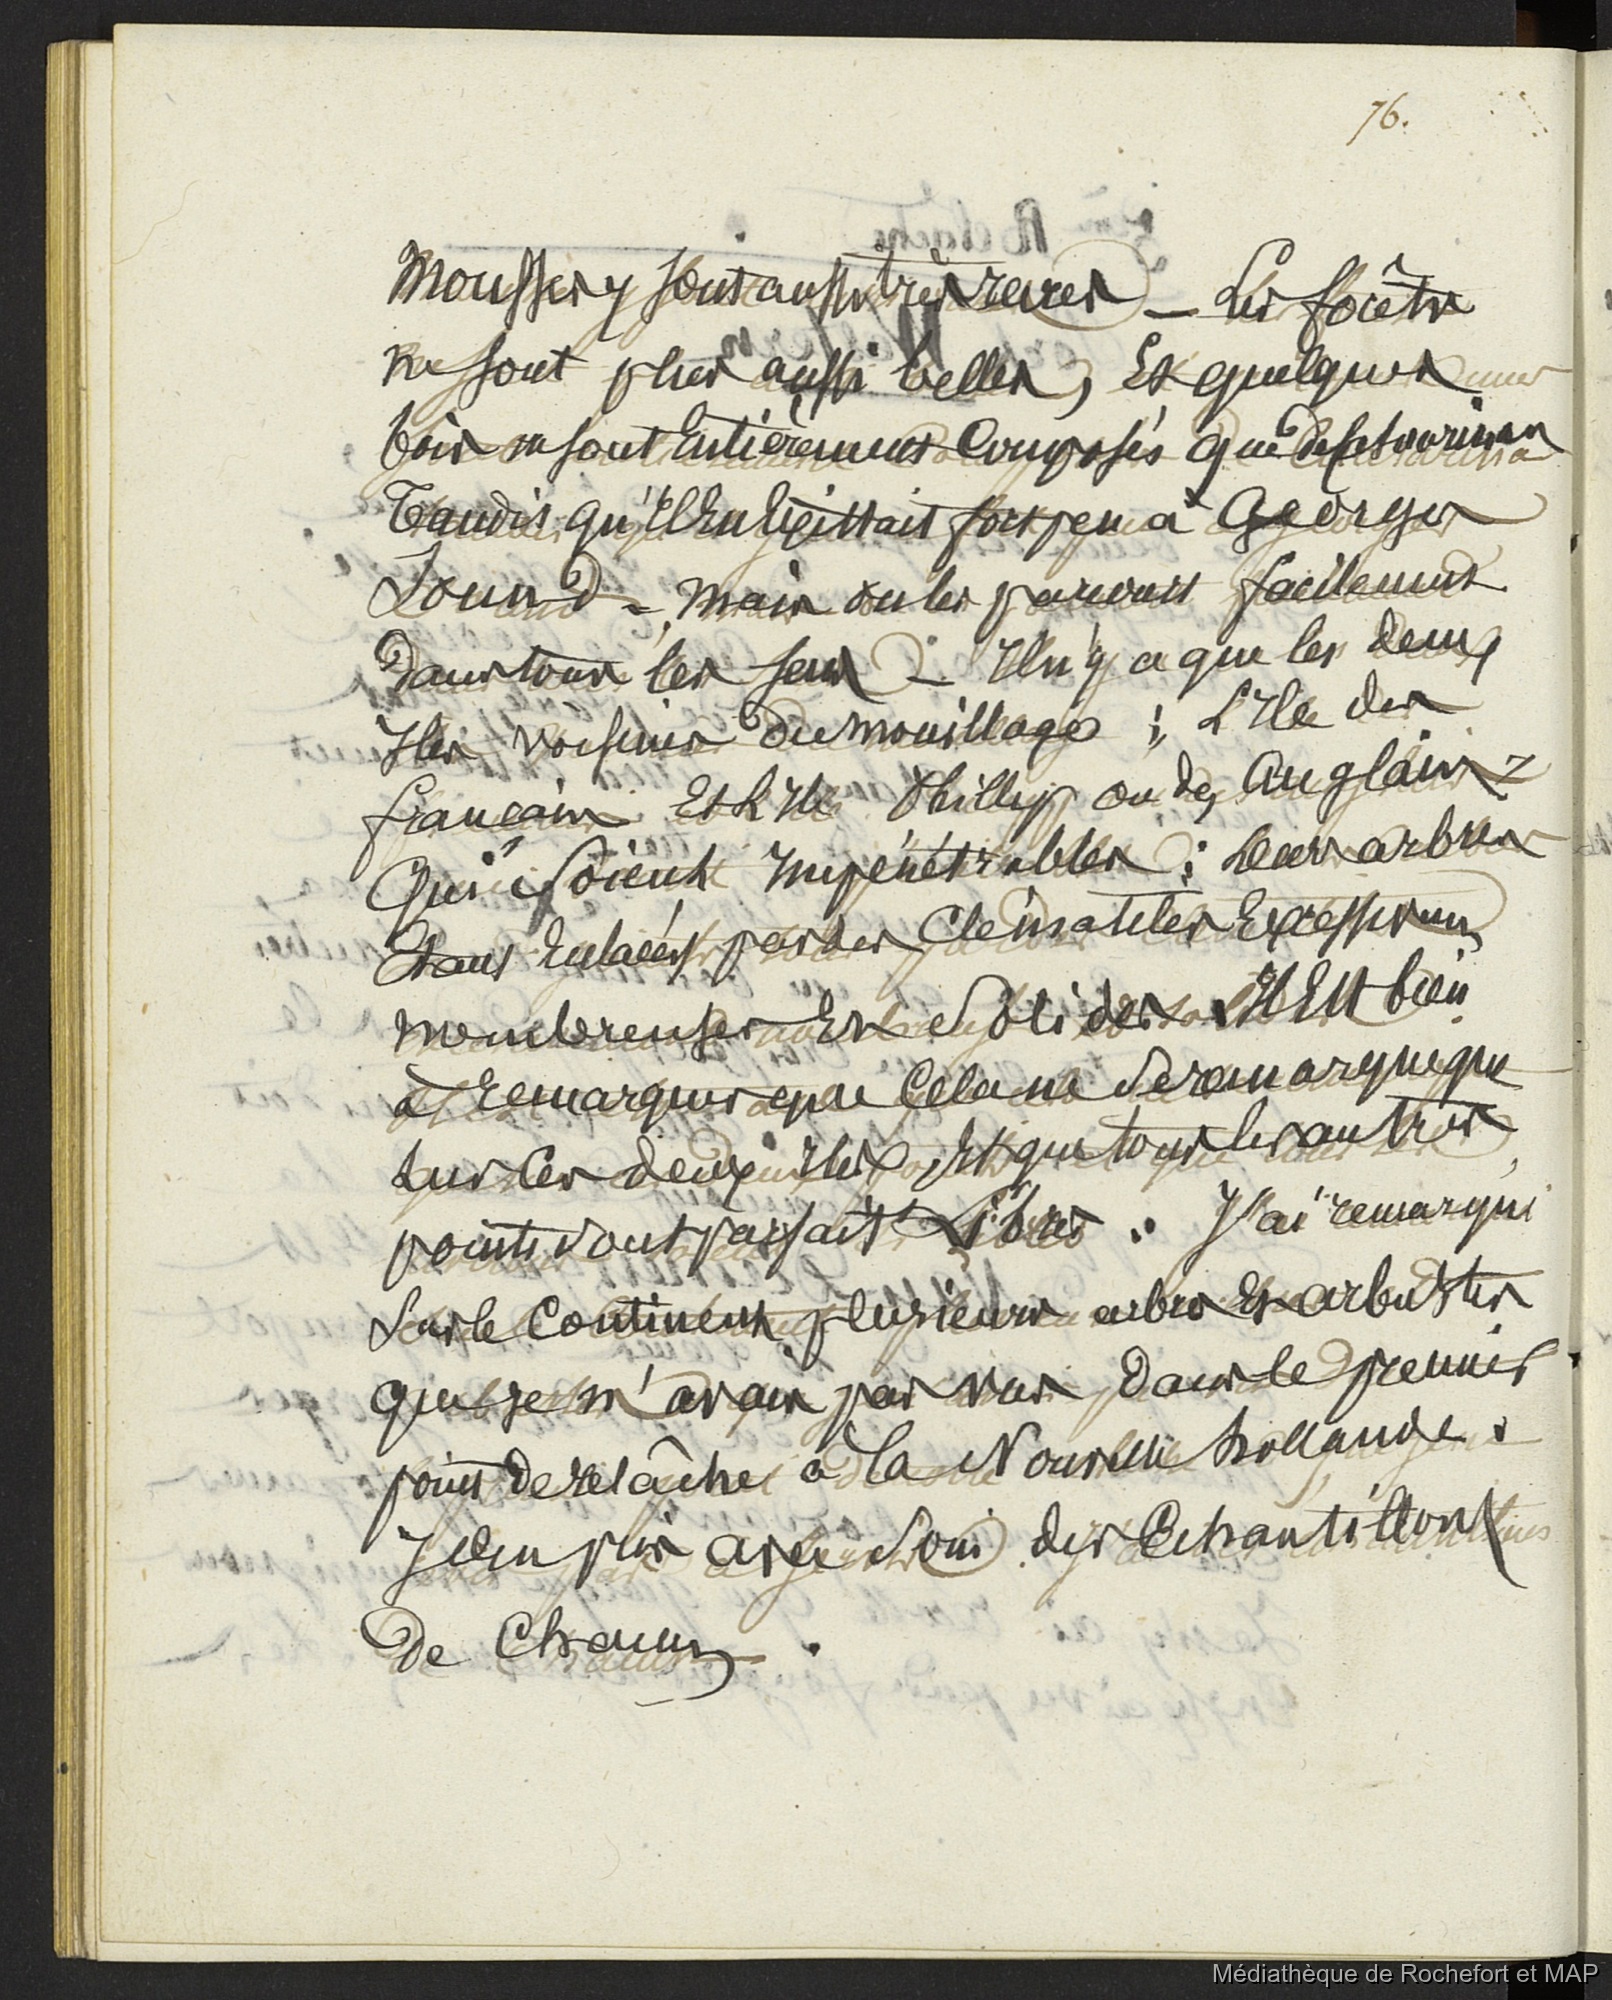 76.
Mousses y sont aussi très rares — Les forêts
ne sont plus aussi belles, Et quelques
bois ne sont Entièrement Composés que de Casuarina
Tandis qu'il En Existait fort peu à Georges
Sound — Mais on les parcourt facilement
Dans tous les sens — Il n'y a que les deux
Iles voisines du mouillage ; L'Ile des
français Et L'Ile Phillip ou des Anglais
Qui soient Impénétrables ; Leurs arbres
Etant Enlacés par des Clématites Excessivem
nombreuses Et Solides Il Est bien
à remarquer que Cela ne se remarque que
sur Ces deux Iles, Et que tous les autres
points sont parfait Libres . J'ai remarqué
sur le Continent plusieurs arbres Et arbustes
que je n'avais pas vus dans le premier
point de relâche à la Nouvelle hollande .
J'en pris avec soin des Echantillons
De Chacun .
Médiathèque de Rochefort et MAP